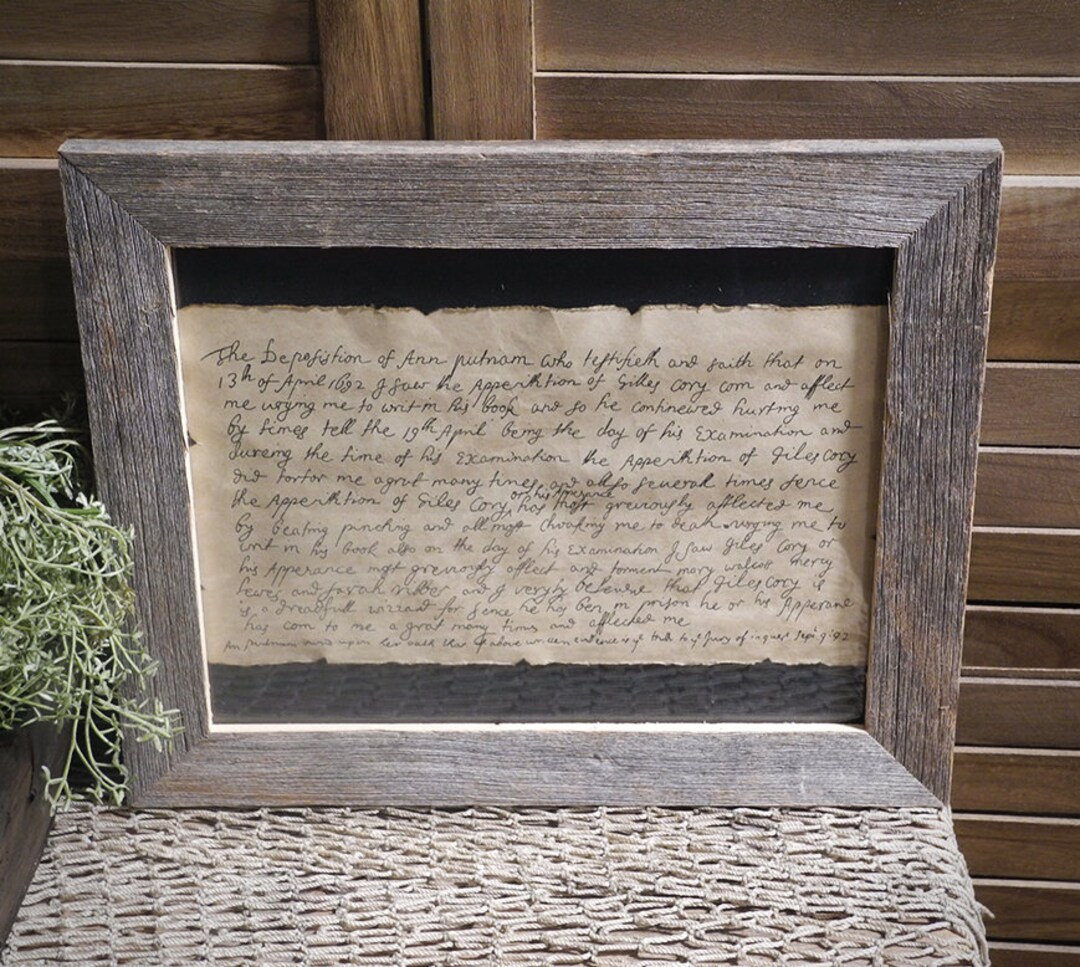 The Depossition of Ann putnam who testifieth and saith that on
13th of April 1692 I saw the Apperishtion of Gilles Cory com and afflect
me urging me to writ in his book and so he contineued hurting me
by times tell the 19th April being the day of his Examination and
dureing the time of his Examination the Apperishtion of Giles Cory
did tortor me agrat many times and allso severall times sence
or his Apperance
the Apperishtion of Giles Cory has most greviously afflected me
by beating pinching and allmost choaking me to death urging me to
writ in his book also on the day of his Examination I saw Giles Cory or
his Apperance most greviously afflect and torment mary walcott mercy
lewes and sarah viber and I veryly beleveue that Giles Cory is
is a dreadfull wizzard for sence he has ben in prison he or his Apperance
has com to me a grat many times and afflected me
An Putnam upon her oath that above writen evidence is y truth to y Jury of inquest Sept 9 92